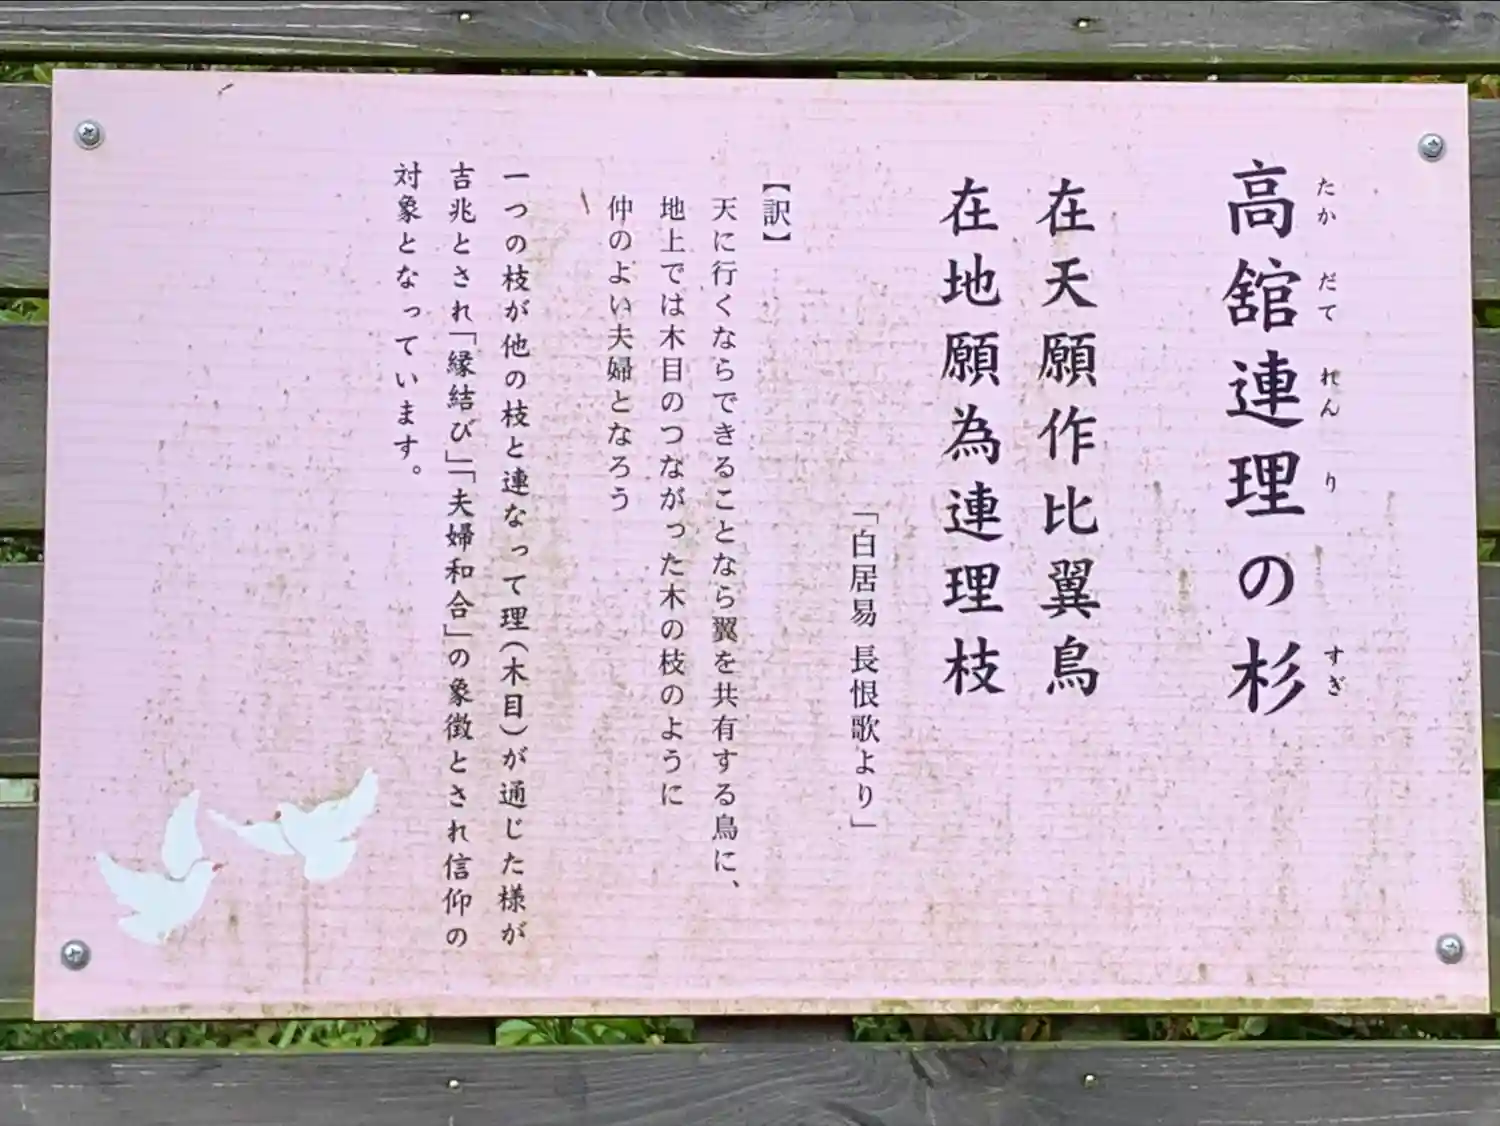 高舘連理の杉
たか だて れん り すぎ
在天願作比翼鳥
在地願為連理枝
「白居易 長恨歌より」
【訳】
天に行くならできることなら翼を共有する鳥に、
地上では木目のつながった木の枝のように
仲のよい夫婦となろう
一つの枝が他の枝と連なって理(木目)が通じた様が
吉兆とされ「縁結び」「夫婦和合」の象徴とされ信仰の
対象となっています。